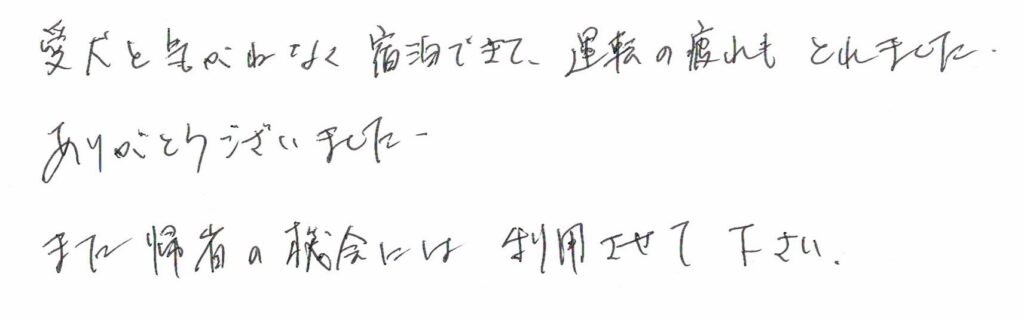 愛犬と気がねなく宿泊できて、運転の疲れもとれました.
ありがとうございました-
また帰省の機会には利用させて下さい.